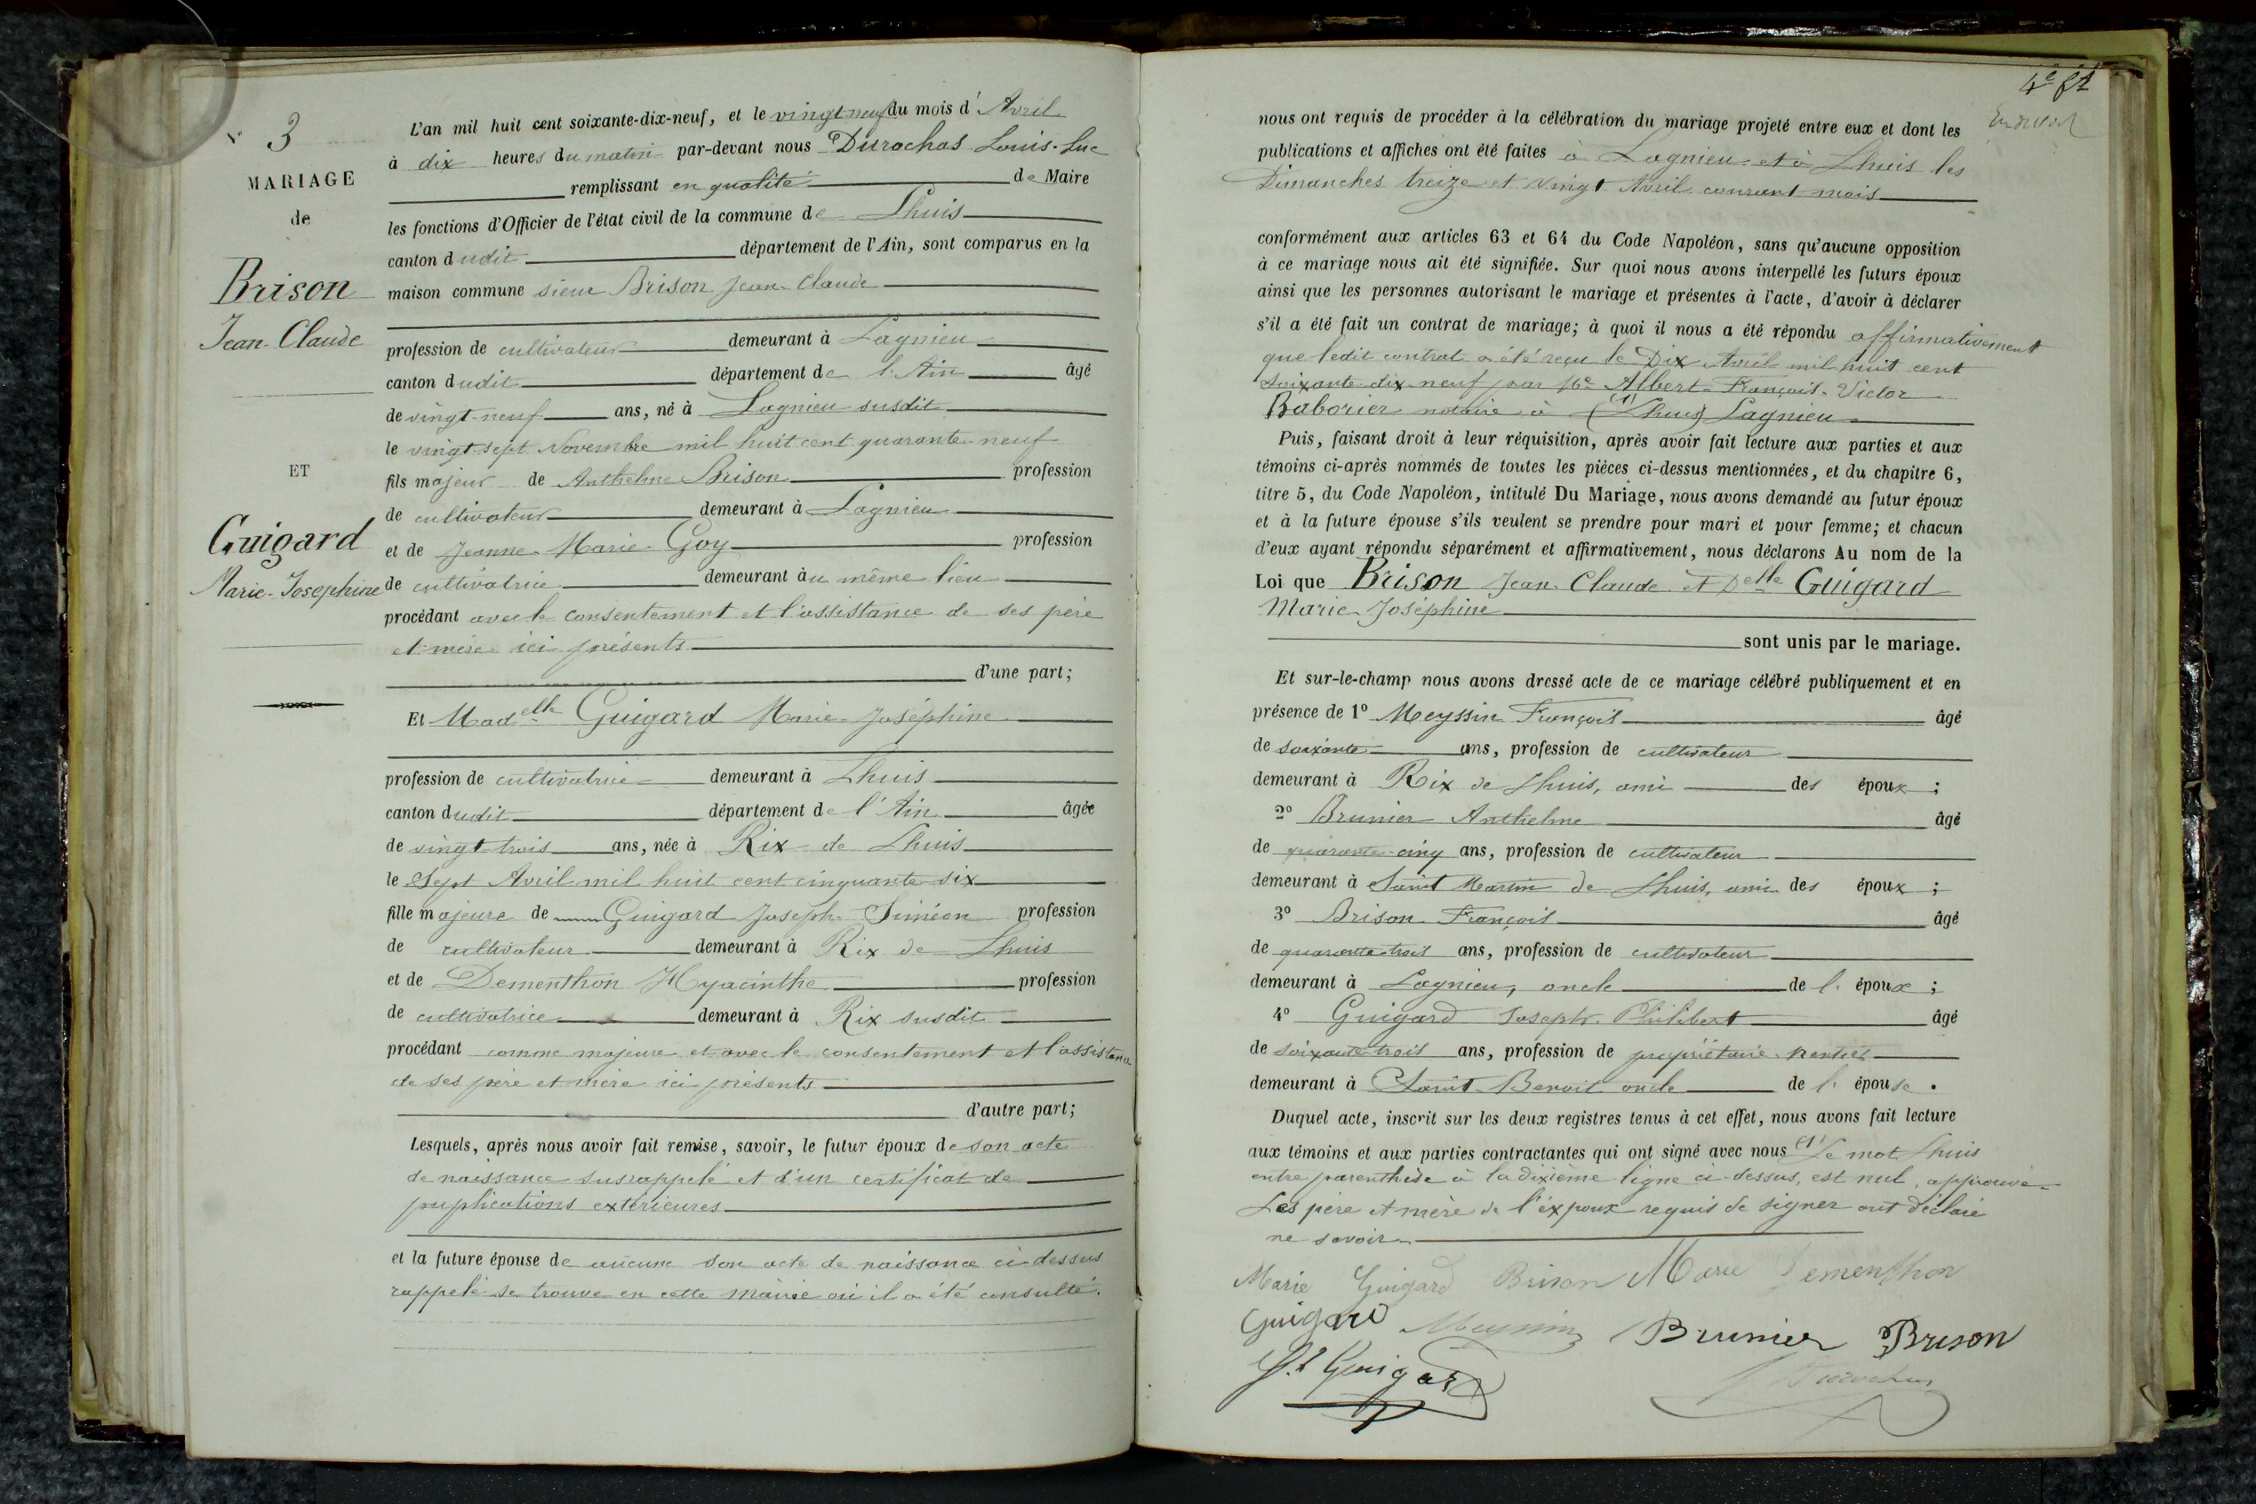 3
MARIAGE
de
Brison
Jean-Claude
ET
Guigard
Marie-Josephine
L'an mil huit cent soixante-dix-neuf, et le vingt neuf du mois d' Avril
à dix heures du matin par-devant nous Durochas Louis-Luc
remplissant en qualité de Maire
les fonctions d'Officier de l'état civil de la commune de Lhuis
canton dudit département de l'Ain, sont comparus en la
maison commune sieur Brison Jean-Claude
profession de cultivateur demeurant à Lagnieu
canton dudit département de l'Ain âgé
de vingt-neuf ans, né à Lagnieu susdit
le vingt-sept Novembre mil huit cent quarante-neuf
fils majeur de Anthelme Brison profession
de cultivateur demeurant à Lagnieu
et de Jeanne-Marie Goy profession
de cultivatrice demeurant au même lieu
procédant avec le consentement et l'assistance de ses père
et mère ici présents
d'une part;
Et Madelle Guigard Marie-Joséphine
profession de cultivatrice demeurant à Lhuis
canton dudit département de l'Ain âgée
de vingt-trois ans, née à Rix de Lhuis
le Sept Avril mil huit cent cinquante-six
fille majeure de Guigard Joseph-Siméon profession
de cultivateur demeurant à Rix de Lhuis
et de Dementhon Hyacinthe profession
de cultivatrice demeurant à Rix susdit
procédant comme majeure et avec le consentement et l'assistance
de ses père et mère ici présents
d'autre part;
Lesquels, après nous avoir fait remise, savoir, le futur époux de son acte
de naissance susrappelé et d'un certificat de
puplications extérieures
et la future épouse de aucune son acte de naissance ci-dessus
rappelé se trouve en cette mairie où il a été consulté.
4e ft
nous ont requis de procéder à la célébration du mariage projeté entre eux et dont les
publications et affiches ont été faites à Lagnieu et à Lhuis les
Dimanches treize et vingt Avril courant mois
conformément aux articles 63 et 64 du Code Napoléon, sans qu'aucune opposition
à ce mariage nous ait été signifiée. Sur quoi nous avons interpellé les futurs époux
ainsi que les personnes autorisant le mariage et présentes à l'acte, d'avoir à déclarer
s'il a été fait un contrat de mariage; à quoi il nous a été répondu affirmativement
que ledit contrat a été reçu le Dix Avril mil huit cent
soixante-dix-neuf par Albert-François-Victor
Baborier notaire à (1) (Lhuis) Lagnieu
Puis, faisant droit à leur réquisition, après avoir fait lecture aux parties et aux
témoins ci-après nommés de toutes les pièces ci-dessus mentionnées, et du chapitre 6,
titre 5, du Code Napoléon, intitulé Du Mariage, nous avons demandé au futur époux
et à la future épouse s'ils veulent se prendre pour mari et pour femme; et chacun
d'eux ayant répondu séparément et affirmativement, nous déclarons Au nom de la
Loi que Brison Jean-Claude et Delle Guigard
Marie-Joséphine
sont unis par le mariage.
Et sur-le-champ nous avons dressé acte de ce mariage célébré publiquement et en
présence de 1º Meyssin François âgé
de soixante ans, profession de cultivateur
demeurant à Rix de Lhuis, ami des époux ;
2º Brunier Anthelme âgé
de quarante-cinq ans, profession de cultivateur
demeurant à Saint Martin de Lhuis, ami des époux ;
3º Brison François âgé
de quarante-trois ans, profession de cultivateur
demeurant à Lagnieu, oncle de l' époux ;
4º Guigard Joseph-Philibert âgé
de soixante-trois ans, profession de propriétaire-rentier
demeurant à Saint-Benoit oncle de l' épouse .
Duquel acte, inscrit sur les deux registres tenus à cet effet, nous avons fait lecture
aux témoins et aux parties contractantes qui ont signé avec nous (1) Le mot Lhuis
entre parenthèse à la dixième ligne ci-dessus, est nul, approuvé
Les père et mère de l'expoux requis de signer ont déclaré
ne savoir
Marie Guigard Brison Marie Dementhon
Guigard Meyssin Brunier Brison
Guigard